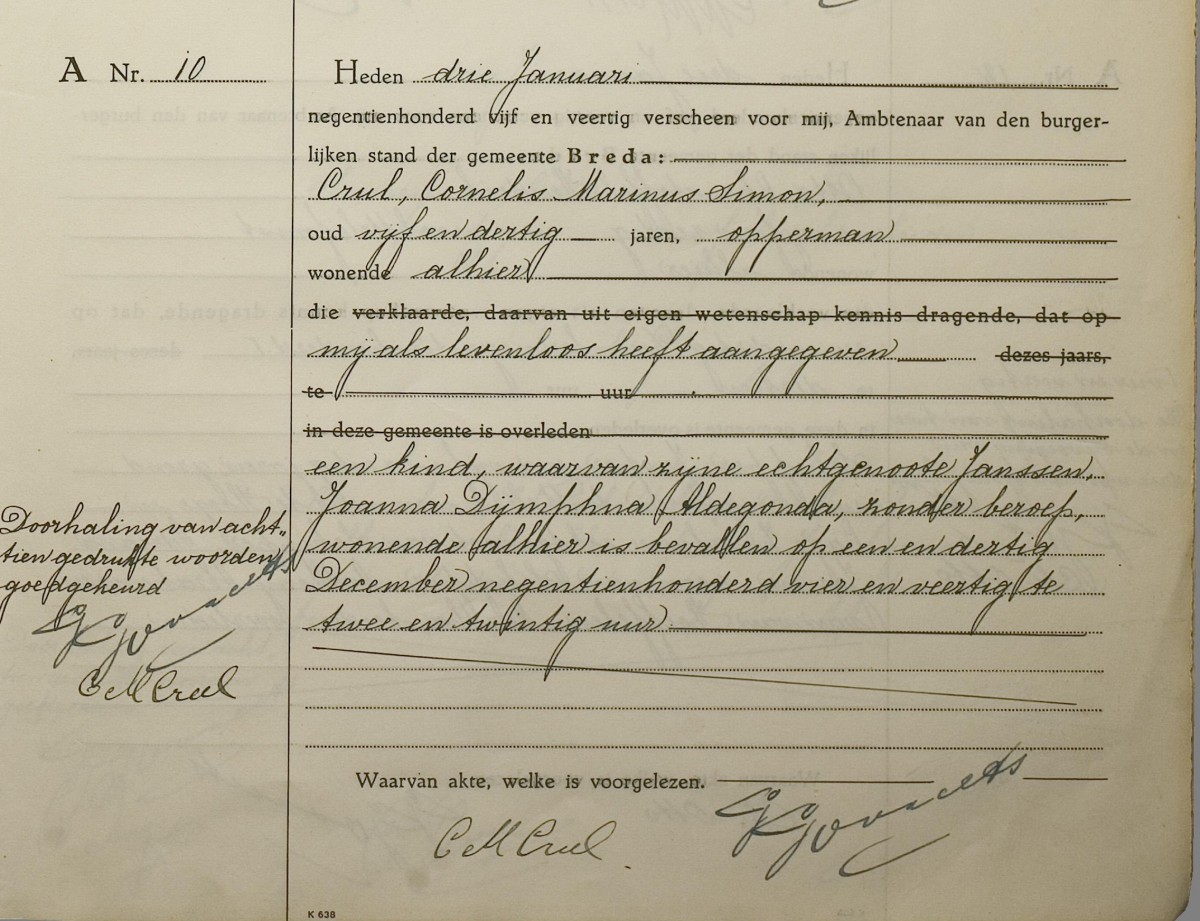 A Nr. 10
Heden drie Januari
negentienhonderd vijf en veertig verscheen voor mij, Ambtenaar van den burger-
lijken stand der gemeente Breda:
Crul, Cornelis Marinus Simon,
oud vijf en dertig jaren, opperman
wonende alhier
die verklaarde, daarvan uit eigen wetenschap kennis dragende, dat op
mij als levenloos heeft aangegeven dezes jaars,
te uur
in deze gemeente is overleden
een kind, waarvan zijne echtgenoote Janssen,
Joanna Dÿmphna Aldegonda, zonder beroep,
wonende alhier is bevallen op een en dertig
December negentienhonderd vier en veertig te
twee en twintig uur
Doorhaling van acht„
tien gedrukte woorden
goedgekeurd
Govaerts
C M Crul
Waarvan akte, welke is voorgelezen.
C M Crul
Govaerts
K 638